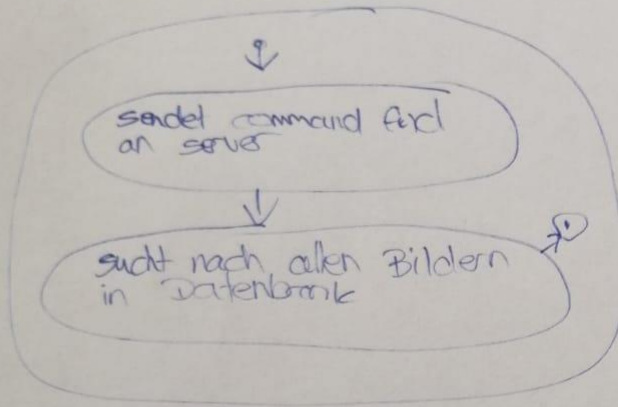 sendet command find
an server
sucht nach allen Bildern
in Datenbank